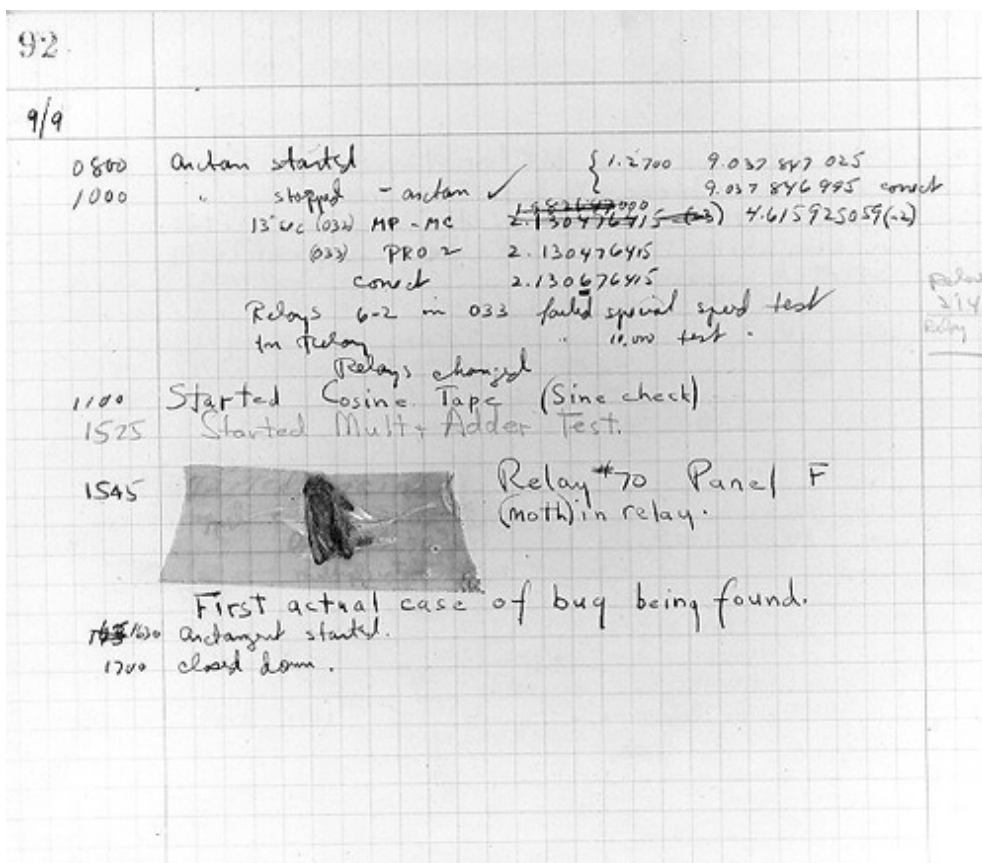 92
9/9
0800 Antan started
1000 " stopped - antan ✓ { 1.2700 9.037 847 025
9.037 846 995 correct
13" uc (032) MP - MC 2.130476415 (-3) 4.615925059(-2)
(033) PRO 2 2.130476415
correct 2.130676415
Relays 6-2 in 033 failed special speed test
in Relay " 10.000 test .
Relays changed
1100 Started Cosine Tape (Sine check)
1525 Started Mult + Adder Test.
1545 Relay #70 Panel F
(moth) in relay.
First actual case of bug being found.
1630 Antangent started.
1700 closed down.
Relay